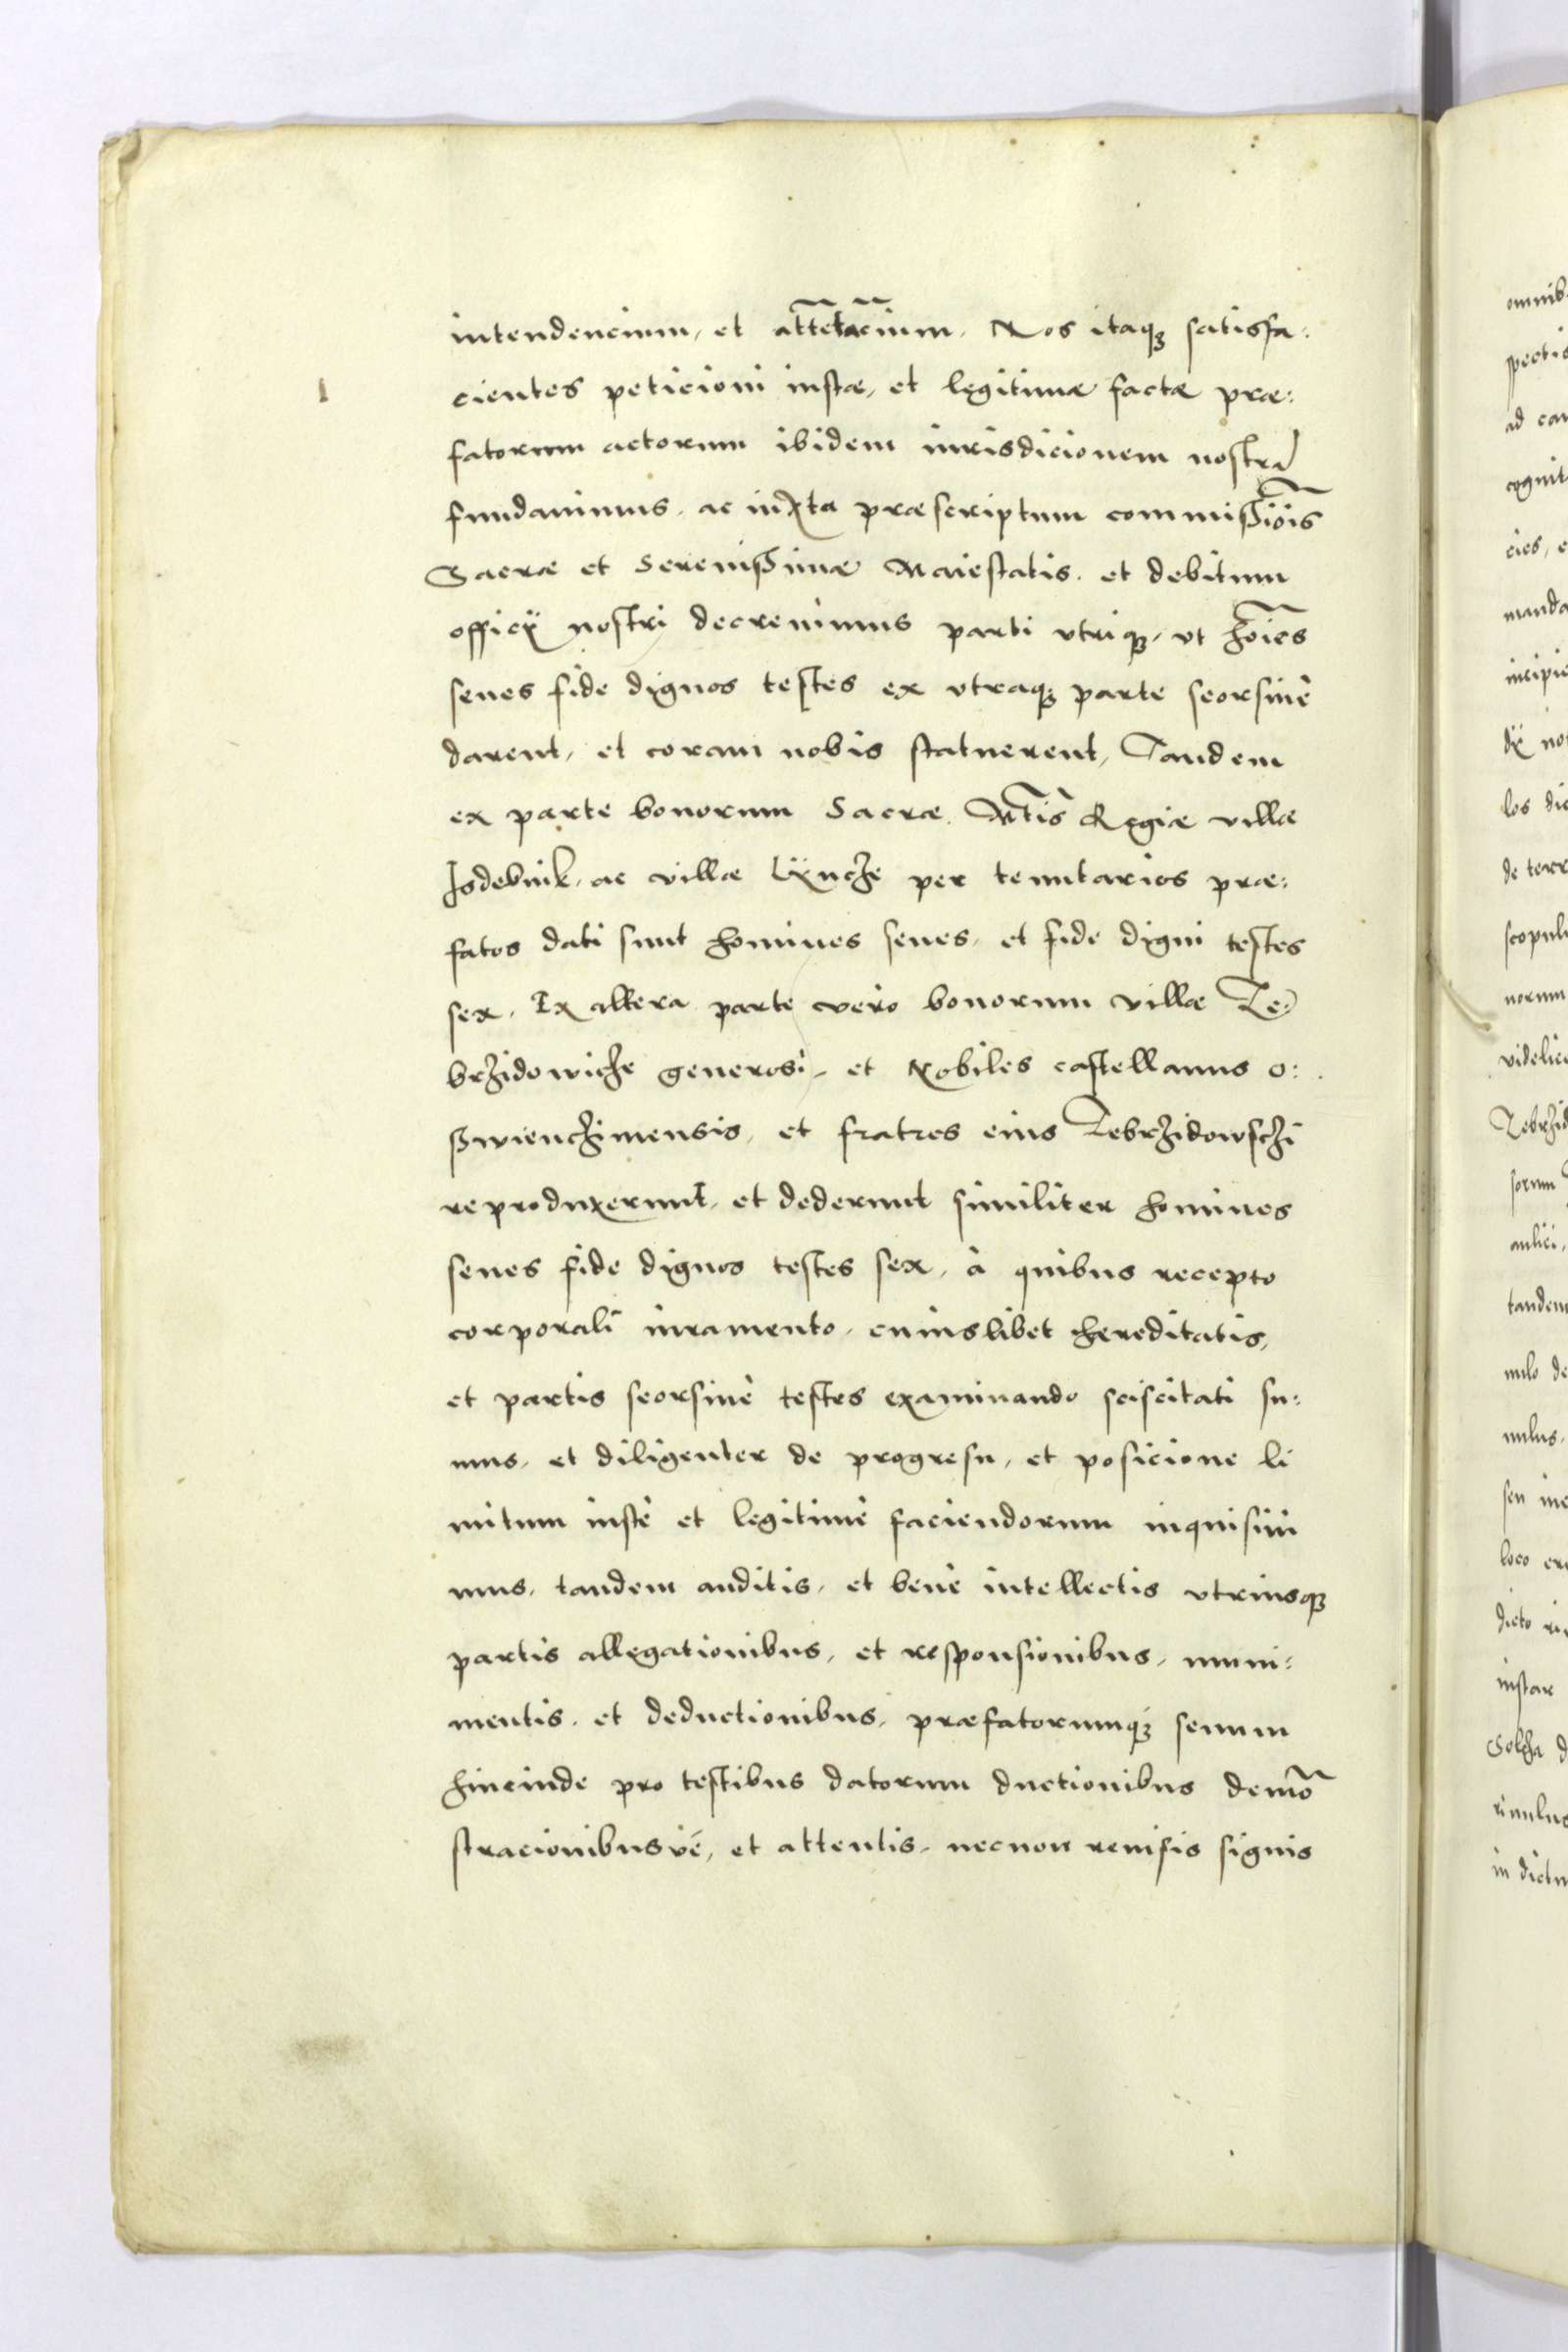 intendencium, et attētācium. Nos itaqꝫ satisfa:
cientes peticioni iustæ, et legitimæ factæ præ:
fatorum actorum ibidem iurisdicionem nostrā
fundauimus. ac iuxta præscriptum commißiōis
Sacræ et Serenißimæ Maiestatis. et debitum
officÿ nostri decreuimus parti vtriqꝫ, vt hōies
senes fide dignos testes ex vtraqꝫ parte seorsiuè
darent, et coram nobis statuerent, Tandem
ex parte bonorum Sacræ Mtis̄ Regiæ villæ
Isdebnik, ac villæ Lÿncze per tenutarios præ:
fatos dati sunt homines senes, et fide digni testes
sex. Ex altera parte vero bonorum villæ Ze:
brzidowicze generosi, et Nobiles castellanus O:
ßwienczimensis, et fratres eius Zebrzidowsczi
reproduxerunt, et dederunt similiter homines
senes fide dignos testes sex, à quibus recepto
corporali iuramento, cuiuslibet hereditatis,
et partis seorsiuè testes examinando sciscitati su:
mus, et diligenter de progresu, et posicione li
mitum iustè et legitimè faciendorum inquisiui
mus, tandem auditis, et benè intellectis vtriusqꝫ
partis allegationibus, et responsionibus, muni:
mentis, et deductionibus, præfatorumqꝫ senum
hincinde pro testibus datorum ductionibus demō
stracionibusvé, et attentis, necnon reuisis signis
omnib
spectis
ad cau
cognit
cies, e
manda
incipie
dÿ no
los dis
de terr
scopul
norum
videlic
Zebrzid
sorum
aulici,
tandem
mulo de
mulus.
seu me
loco
dicto
instar
rimulus
in dictu